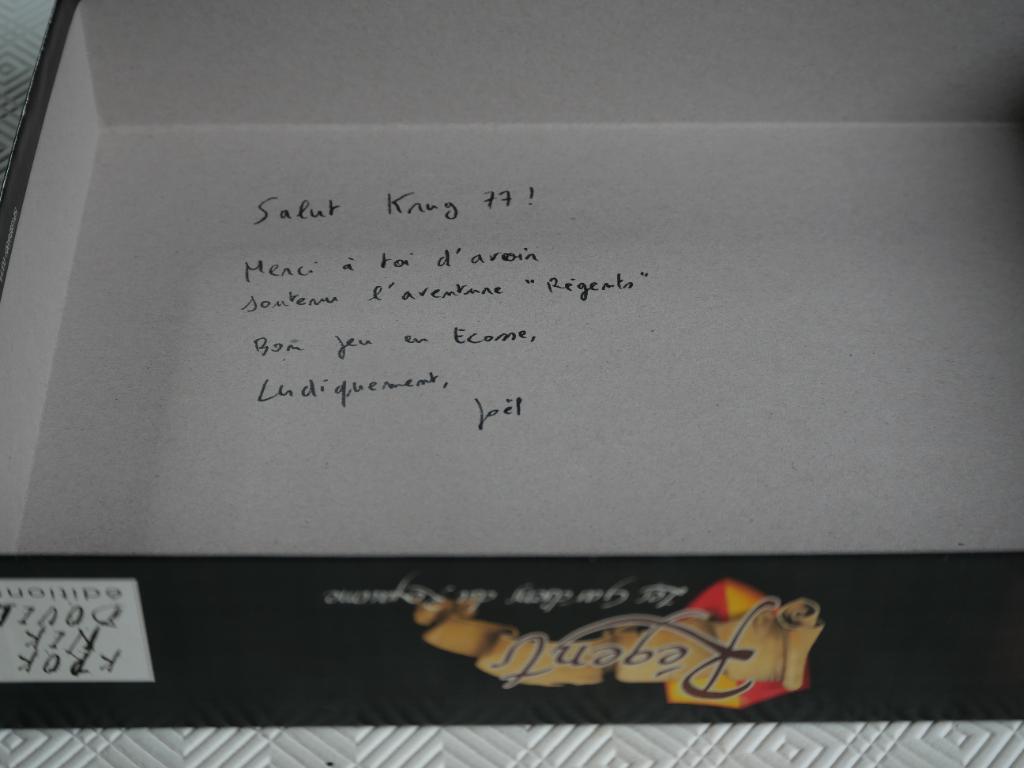 Salut Krug 77!
Merci à toi d'avoir
soutenu l'aventure "Régents"
Bon jeu en Ecosse,
Ludiquement,
Joël
Régents
Les gardiens du Royaume
édition